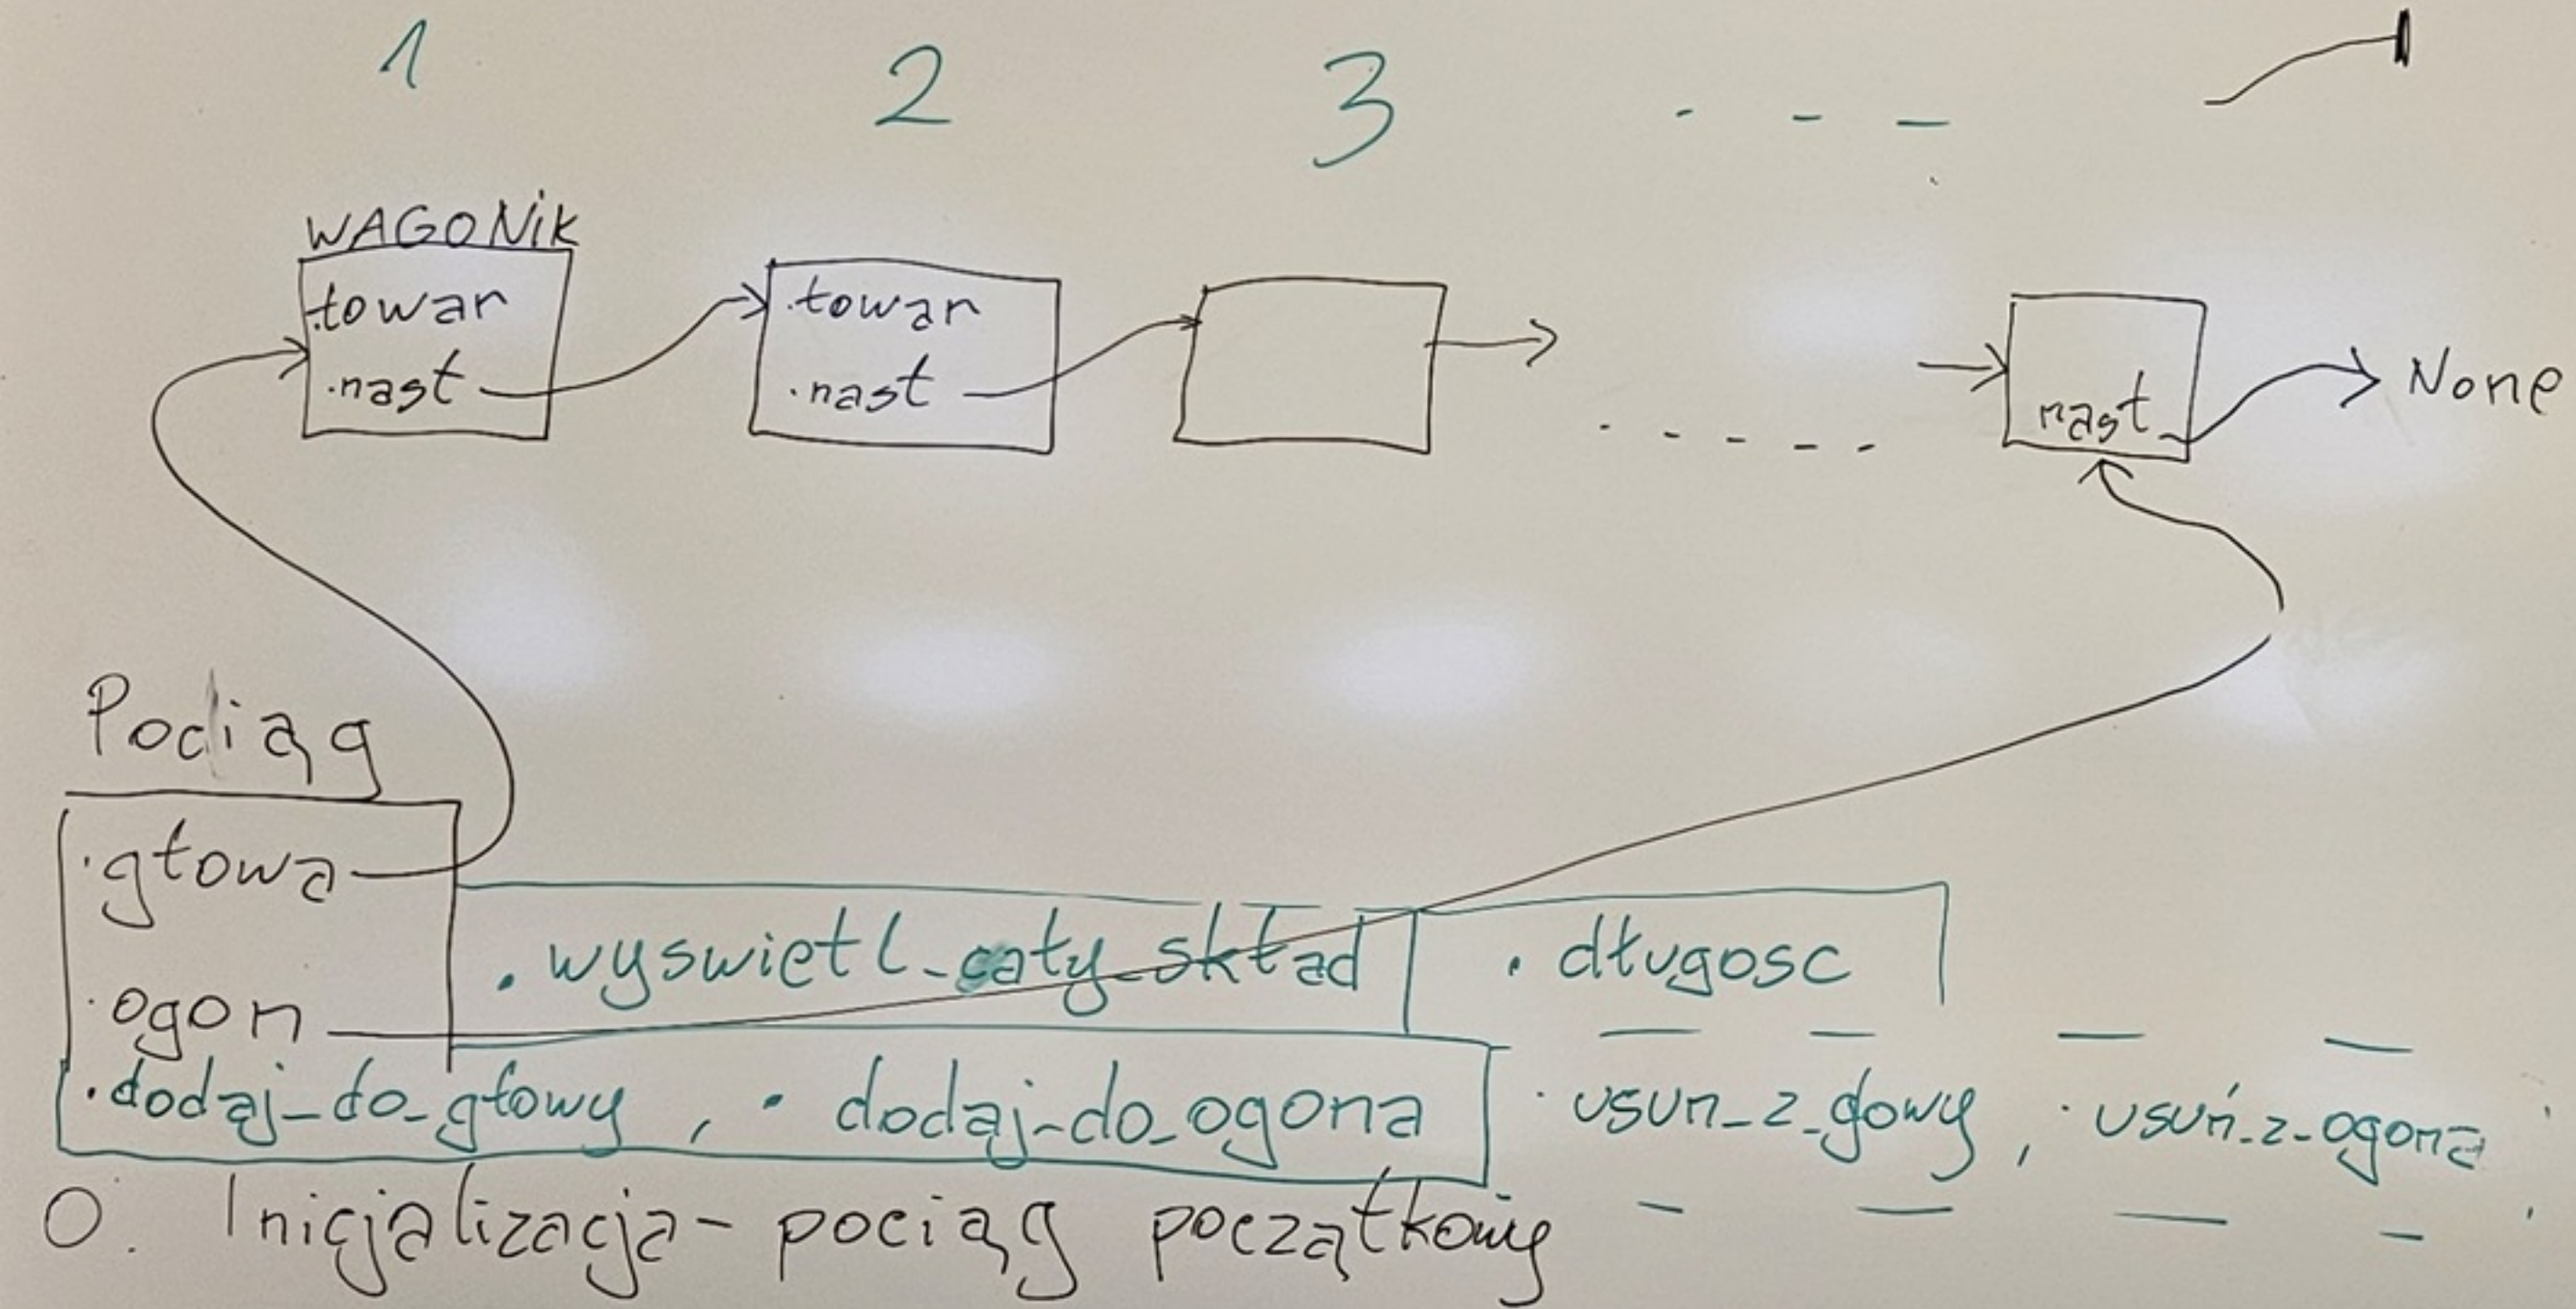 1 2 3 . - - -
WAGONik
.towar .towar
.nast .nast nast None
Pociąg
.głowa
.wyswietl_cały_skład .długosc
.ogon
.dodaj_do_głowy , .dodaj_do_ogona .usun_z_głowy , .usuń_z_ogona
0. Inicjalizacja - pociąg początkowy